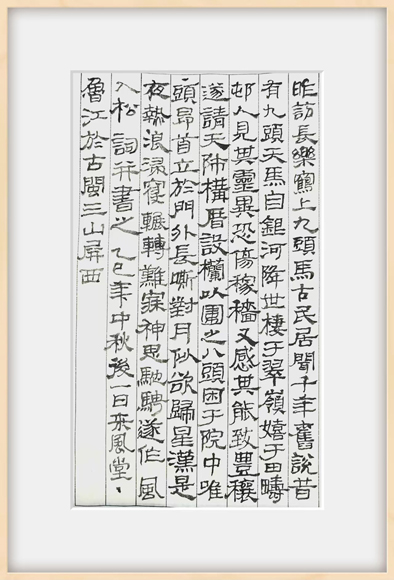 昨訪長樂鶴上九頭馬古民居聞千年舊說昔
有九頭天馬自銀河降世棲于翠嶺嬉于田疇
邨人見其靈異恐傷稼穡又感其能致豐穰
遂請天師構厝設欄以圍之八頭困于院中唯
一頭昂首立於門外長嘶對月似欲歸星漢是
夜熱浪濕寢輾轉難寐神思馳騁遂作風
入松 詞并書之 乙巳年中秋後一日來風堂、
魯江於古閩三山屏西